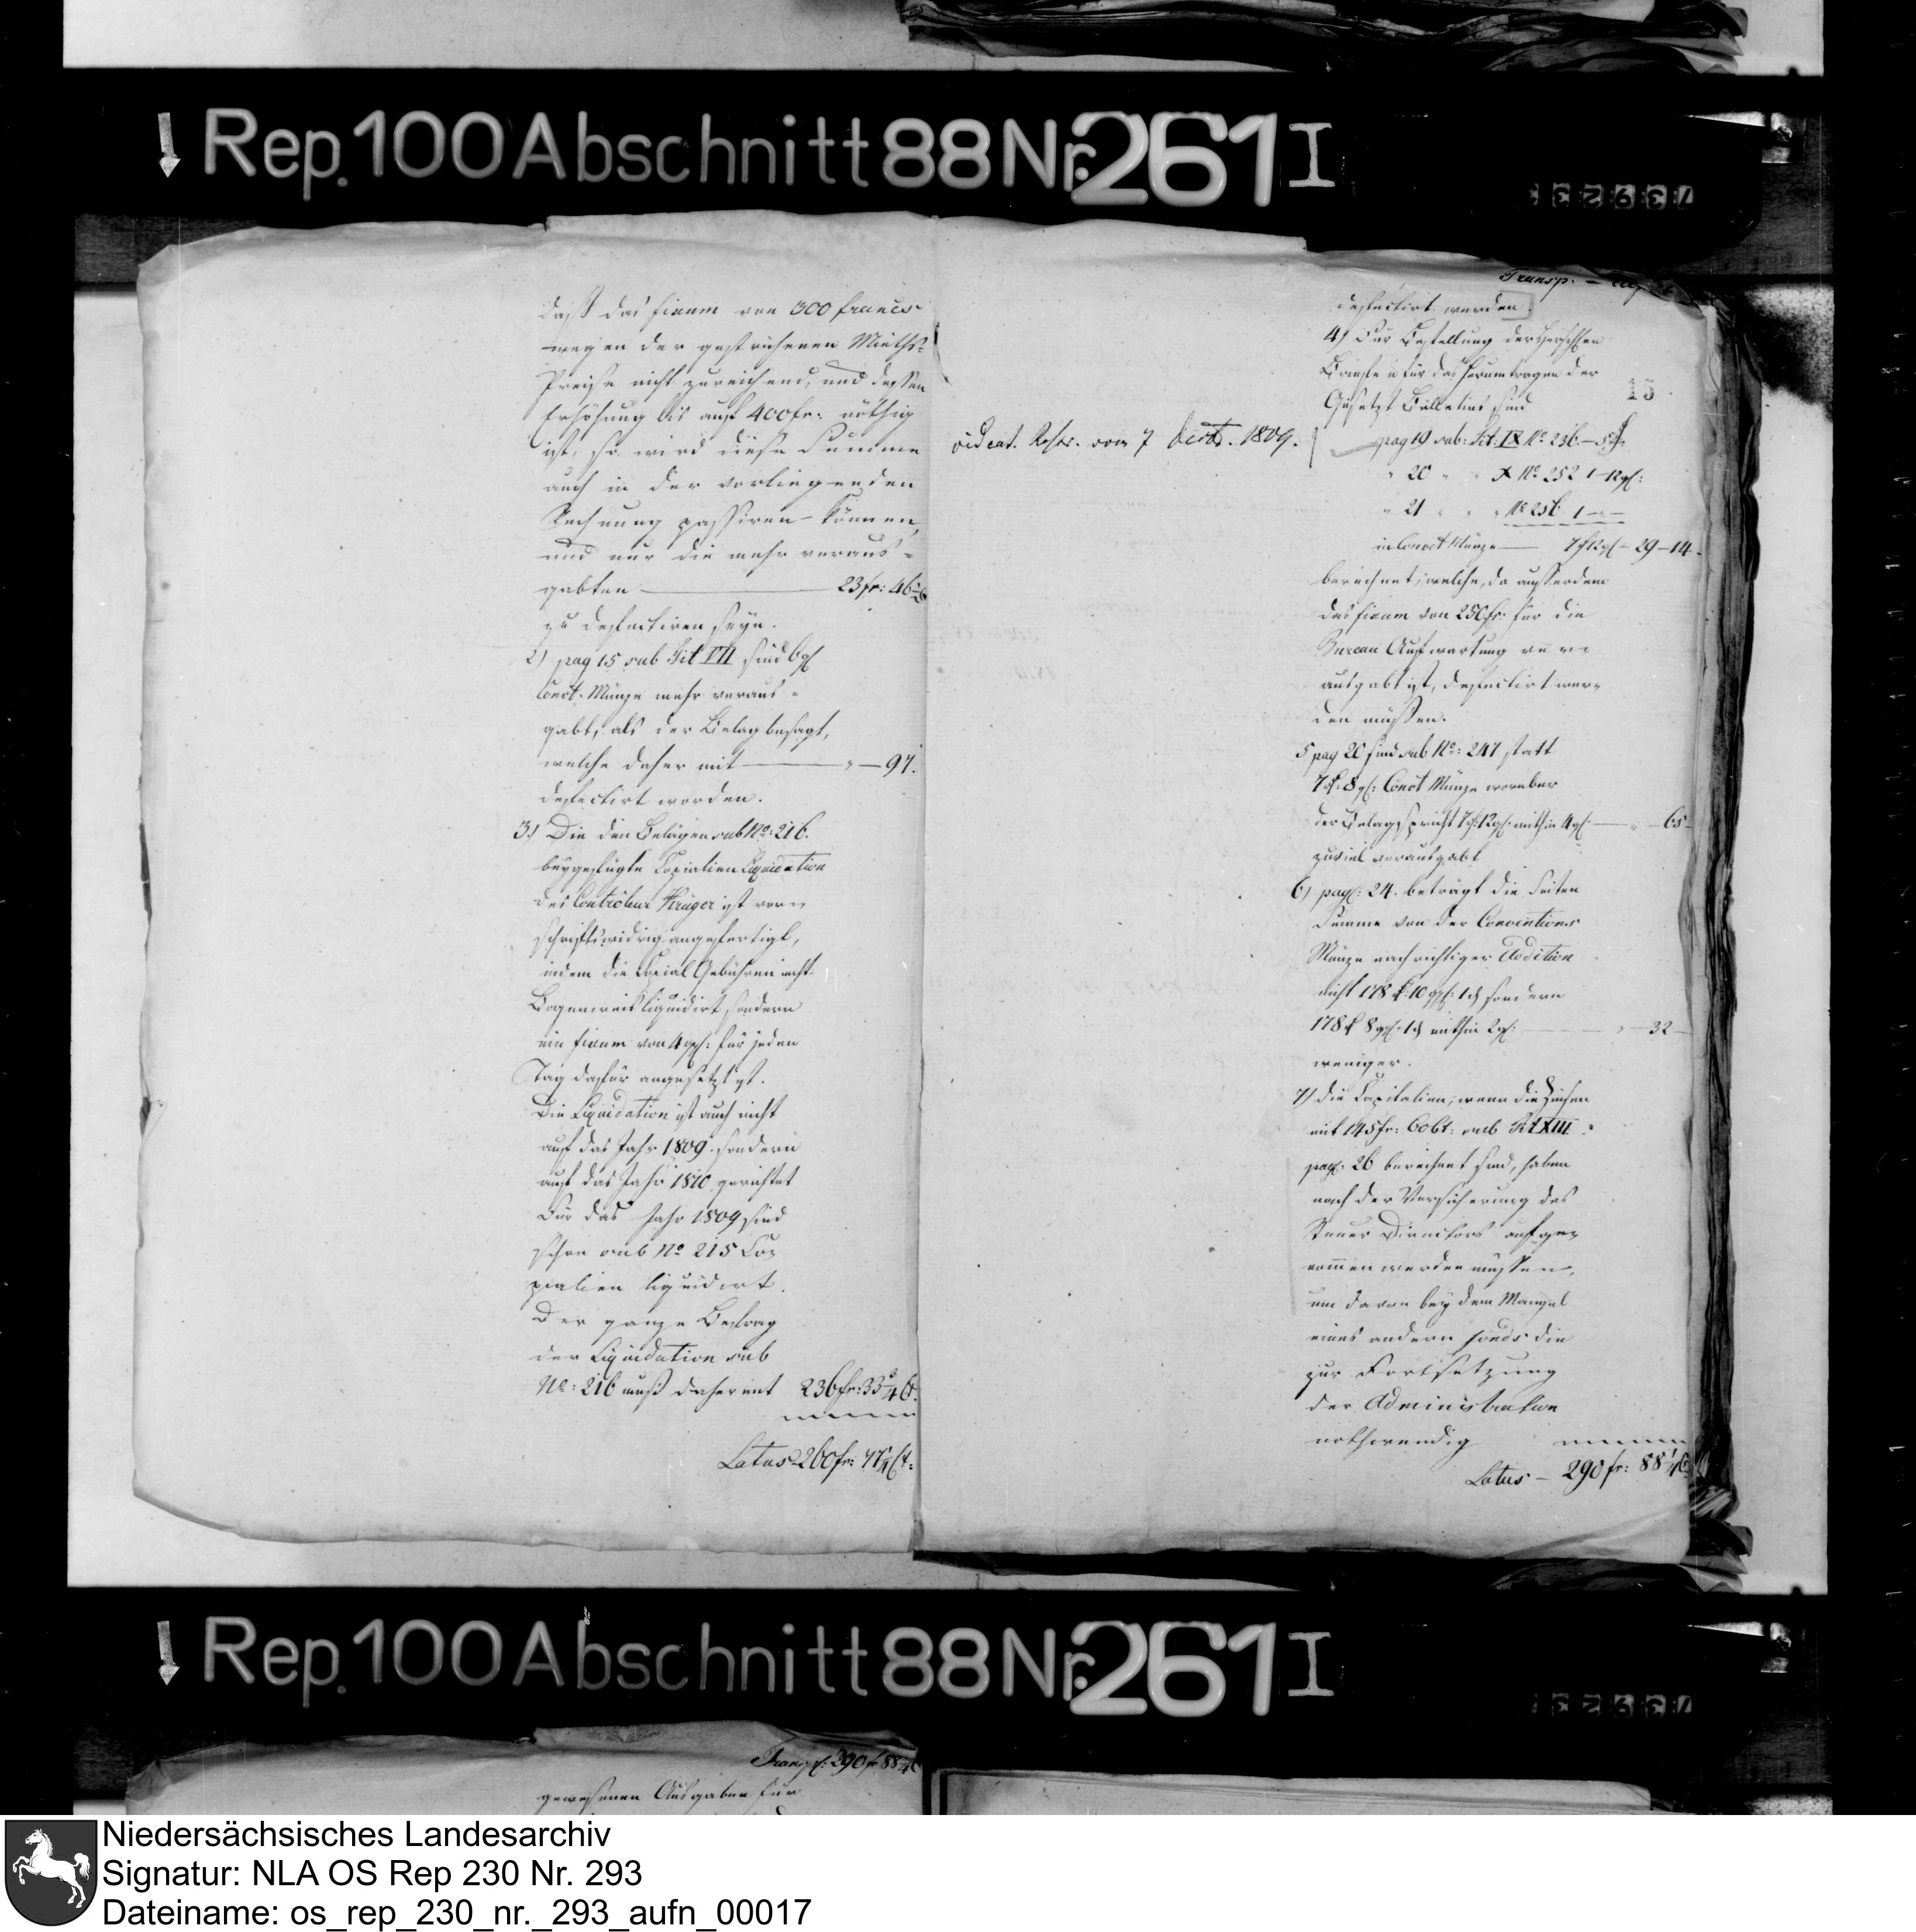 Rep. 100 Abschnitt 88 Nr. 261 I
daß das fixum von 300 francs
wegen der gestrichenen Mieths-
Preise nicht zureichend, und dessen
Erhöhung bis auf 400 fr: nöthig
ist, so wird diese Summe
auch in der vorliegenden
Rechnung passiren können,
und nur die mehr veraus-
gabten — 23 fr: 46
zu defectiren seyn.
2) pag 15 sub Tit VII sind 6 gl
Convt. Münze mehr veraus-
gabt, als der Belag besagt,
welche daher mit — " — 97.
defectirt worden.
3.) Die den Belägen sub No: 216.
beygefügte Copialien Liquidation
des Contrôleur Krüger ist vor-
schriftswidrig angefertigt,
indem die Copial Gebühren nicht
Bogenweis liquidirt sondern
ein fixum von 4 ggl: für jeden
Tag dafür angesetzt ist.
Die Liquidation ist auch nicht
auf das Jahr 1809. sondern
auf das Jahr 1810 gerichtet
Für das Jahr 1809 sind
schon sub No 215 Co-
pialien liquidirt.
Der ganze Betrag
der Liquidation sub
No: 216 muß daher mit 236 fr: 33 3/4 Ct.
Latus 260 fr: 77 1/4 Ct:
vid eat. Rescr. vom 7 1809.
Transp. —
defectirt werden.
4) Für Bestellung der
Briefe u für das Herumtragen der
Gesetz Bülletins sind
15
pag 19 sub: Tit: IX No 236. — 5
" 20 " " X No. 252 1 — 12 gl:
" 21 " " " No 256 1 — " —
in Convt Münze — 7 f 12 gl — 29 — 14.
berechnet; welche, da außerdem
das fixum von 250 fr: für die
Bureau Aufwartung ver-
ausgabt ist, defectirt wer-
den müssen.
5 pag 20 sind sub No: 247 statt
7 f: 8 gl: Convt Münze worüber
der Belag spricht 7 f: 12 gl: mithin 4 gl: — " — 65 —
zuviel verausgabt
6) pag: 24. beträgt die Seiten
Summe von der Conventions
Münze nach richtiger Addition
nicht 178 f: 10 ggl: 1 d sondern
178 f 8 ggl 1 d mithin 2 gl: — " — 32 —
weniger.
7) die Capitalien, wenn die Zinsen
mit 145 fr: 60 Ct: sub Tit XIII.
pag: 26 berechnet sind, haben
nach der Versicherung des
Steuer Directors aufge-
nommen werden müssen,
um davon bey dem Mangel
eines andern fonds die
zur Fortsetzung
der Administration
nothwendig
Latus — 290 fr: 88 1/4 Ct
Rep. 100 Abschnitt 88 Nr. 261 I
Transp: 290 fr 88 1/4 C
gewesenen Ausgaben für
Niedersächsisches Landesarchiv
Signatur: NLA OS Rep 230 Nr. 293
Dateiname: os_rep_230_nr._293_aufn_00017